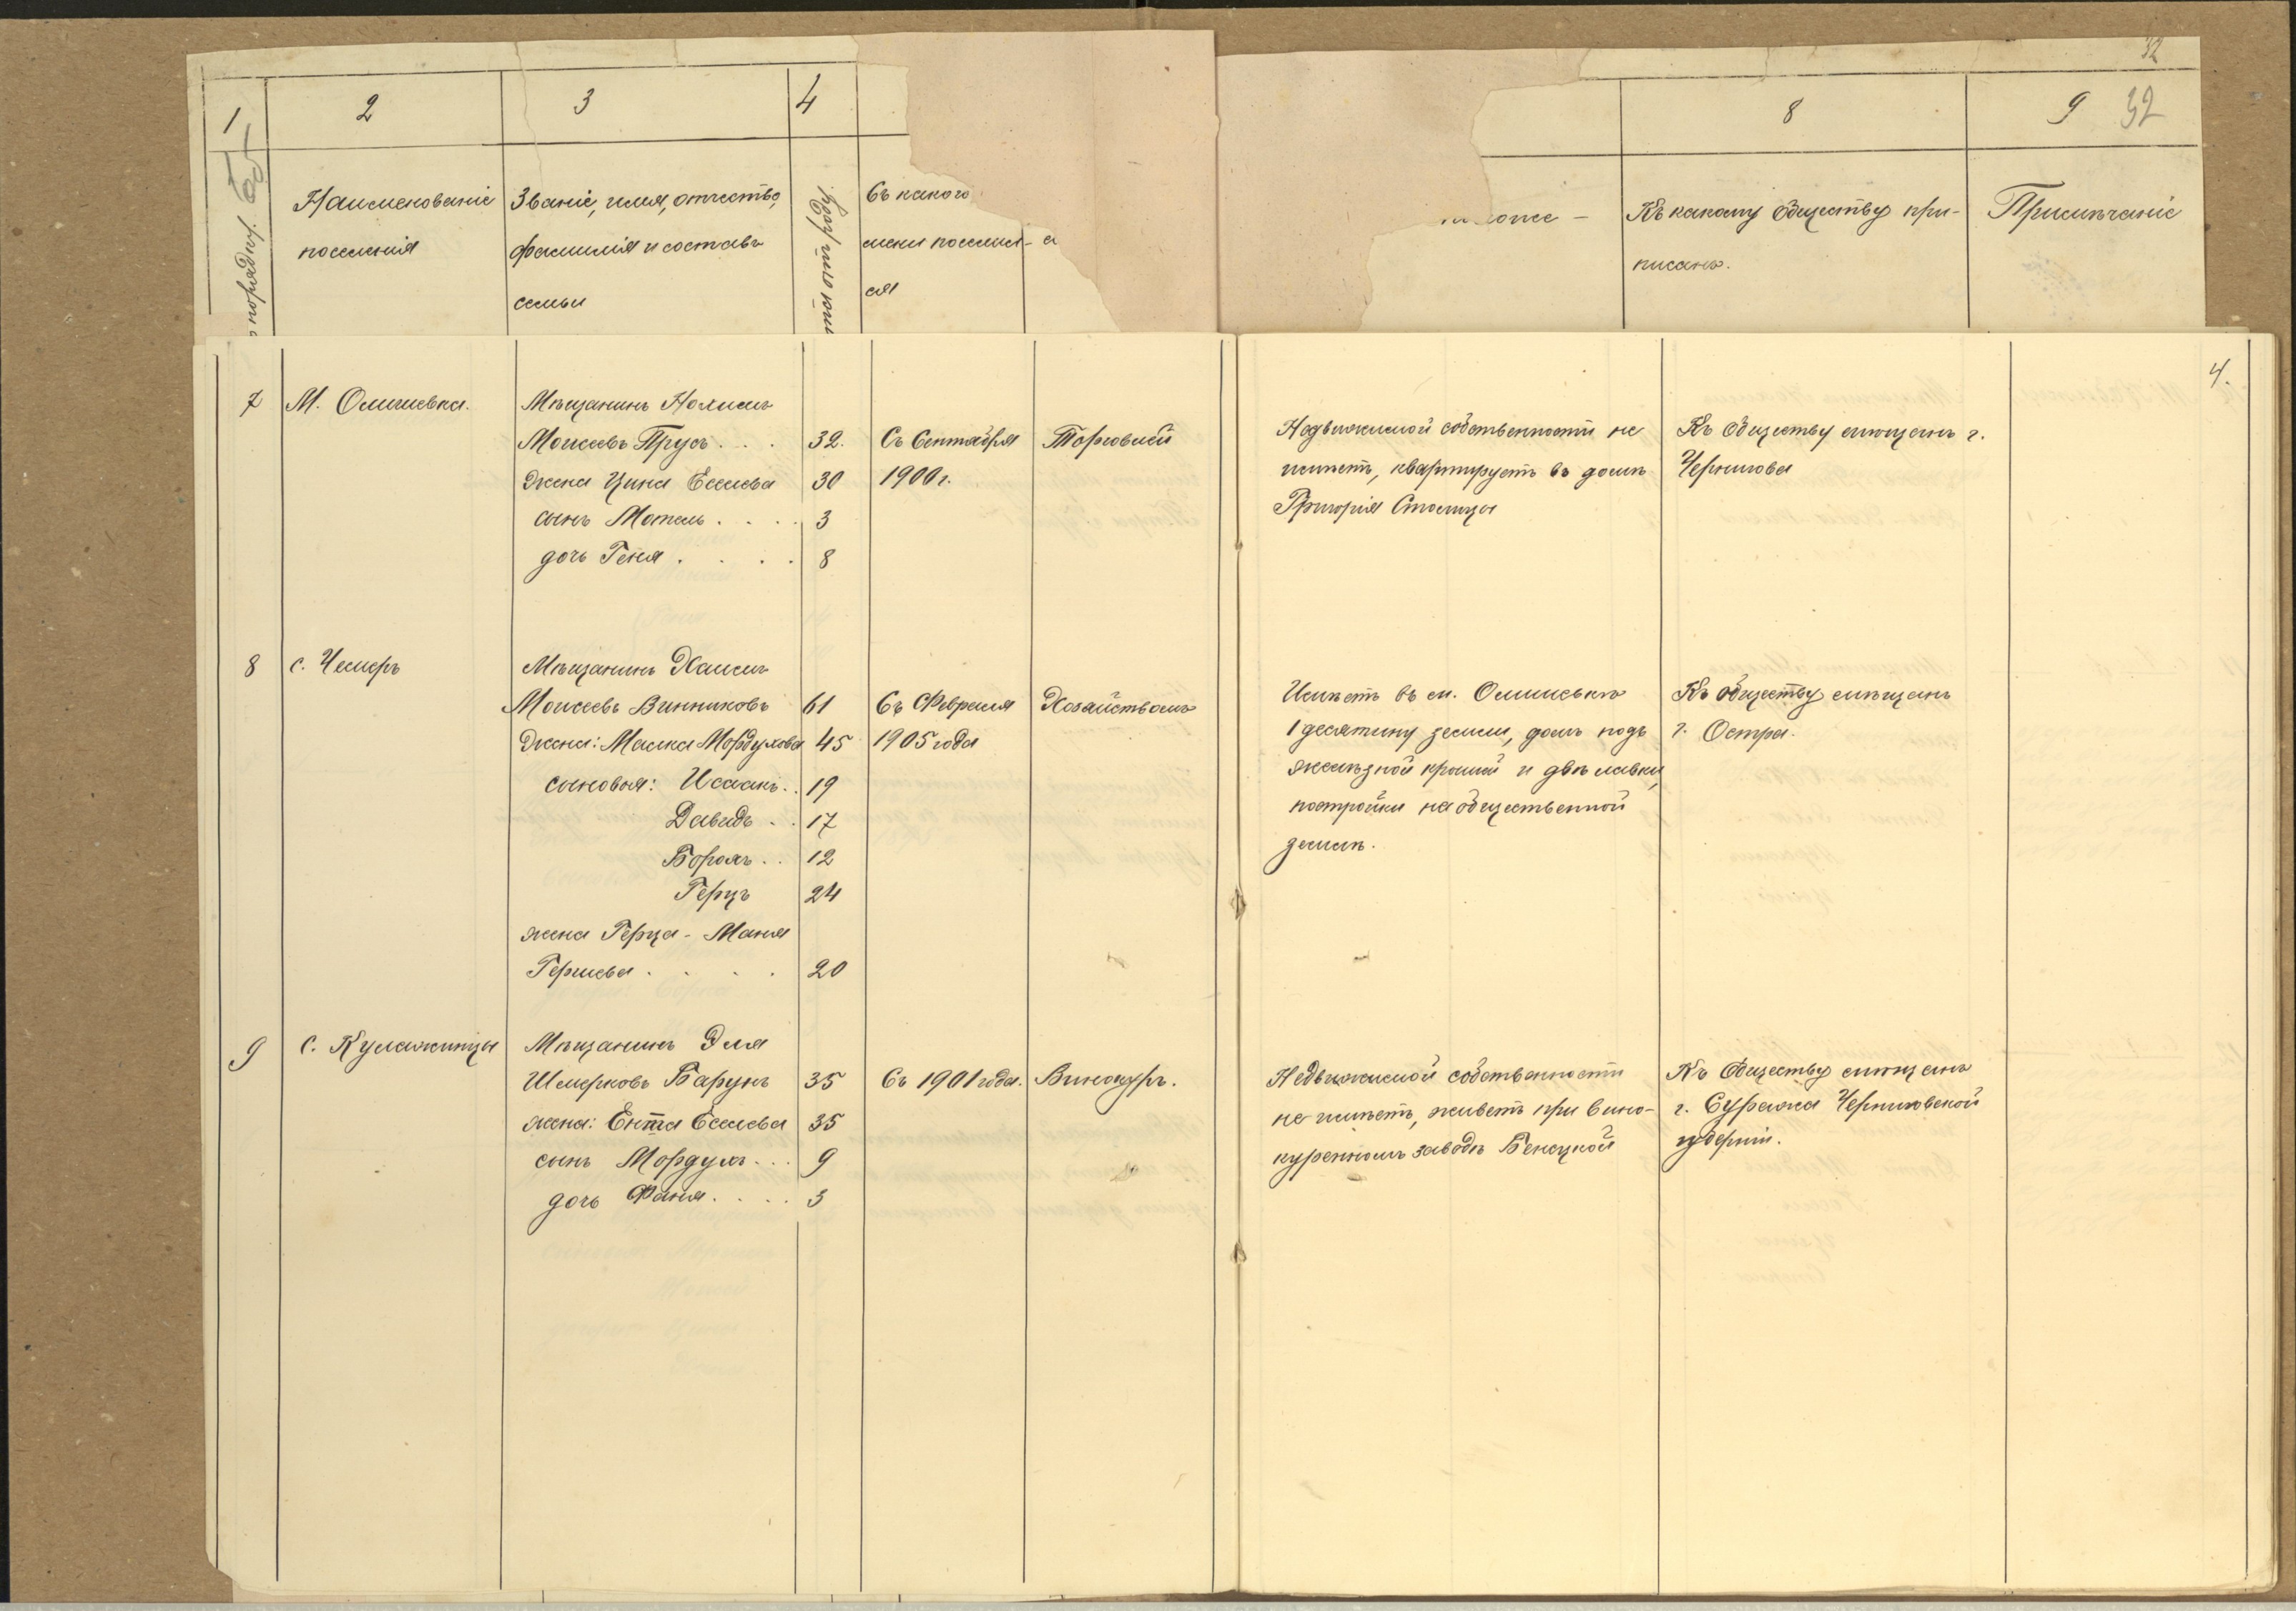 32
1 2 3 4 8 9 32
Наименованіе
поселенія
Званіе, имя, отчество,
фамилія и составъ
семьи
Съ какого
мени поселил-
ся
Къ какому обществу при-
писанъ.
Примѣчаніе
4.
7 М. Олишевка. Мѣщанинъ Нохимъ
Моисеевъ Трусъ . . . 32. Съ Сентября Торговлей
Жена Цина Еселева 30 1900 г.
сынъ Мотель . . . . 3
дочь Геня . . . . 8
Недвижимой собственности не
имѣетъ, квартируетъ въ домѣ
Григорія Столицы
Къ обществу мѣщанъ г.
Чернигова
8 с. Чемеръ Мѣщанинъ Хаимъ
Моисеевъ Винниковъ 61 Съ Февраля Хозяйствомъ
Жена: Малка Мордухова 45 1905 года
сыновья: Исаакъ . . 19
Давидъ . . 17
Борохъ . . 12
Герцъ 24
жена Герца - Маня
Гершева . . . . 20
Имѣетъ въ м. Олишевкѣ
1 десятину земли, домъ подъ
желѣзной крышей и двѣ лавки,
постройки на общественной
землѣ.
Къ обществу мѣщанъ
г. Остра.
9 с. Кулажинцы Мѣщанинъ Эля
Шмерковъ Барунъ 35 Съ 1901 года. Винокуръ.
жена: Ента Еселева 35
сынъ Мордухъ . . . 9
дочь Фаня . . . . 3
Недвижимой собственности
не имѣетъ, живетъ при вино-
куренномъ заводѣ
Къ Обществу мѣщанъ
г. Суража Черниговской
губерніи.